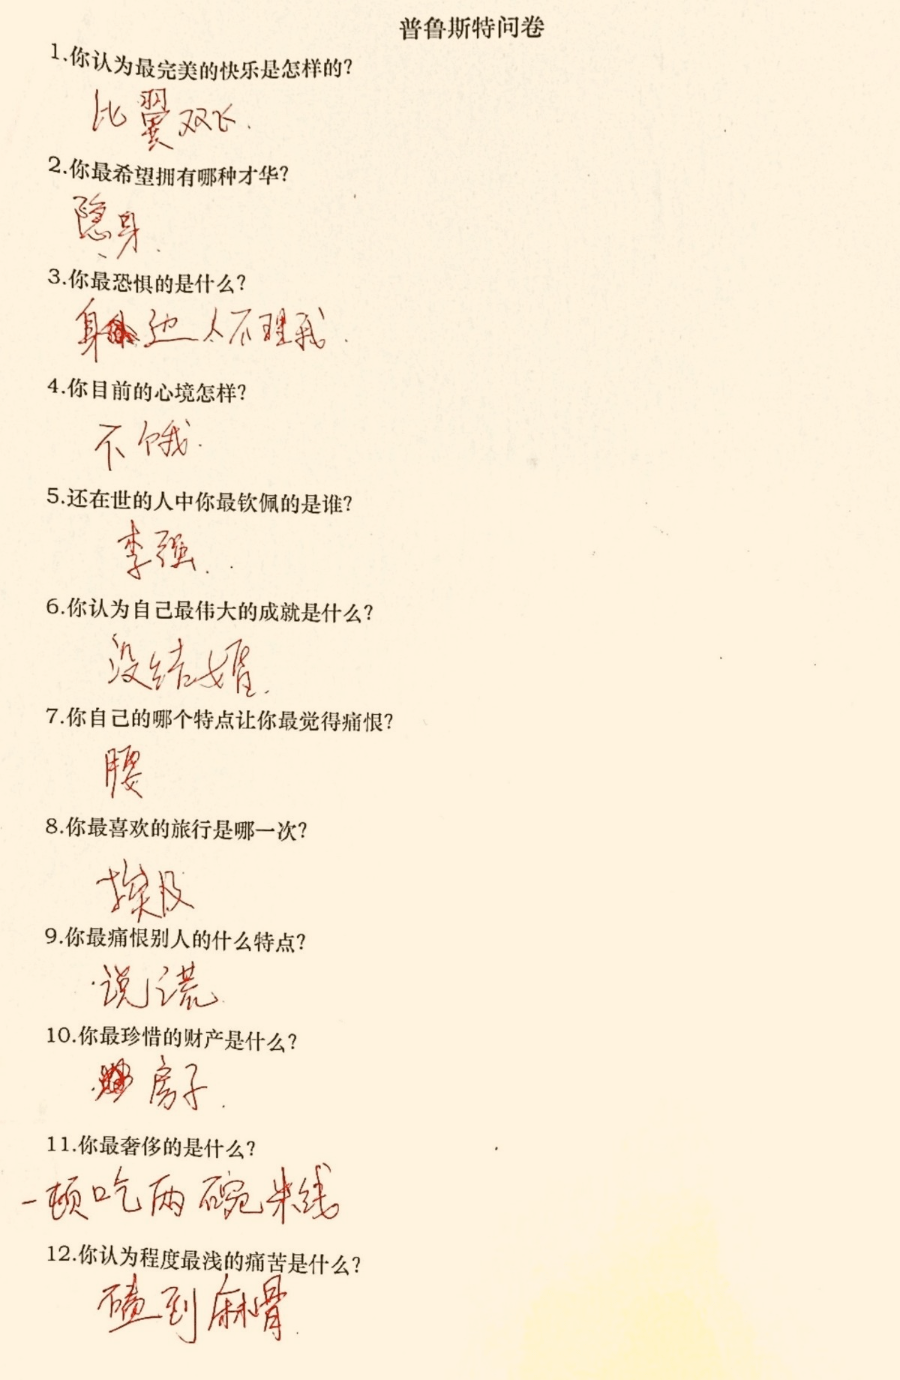 普鲁斯特问卷
1.你认为最完美的快乐是怎样的?
比翼双飞.
2.你最希望拥有哪种才华?
隐身.
3.你最恐惧的是什么?
身边人不理我.
4.你目前的心境怎样?
不饿.
5.还在世的人中你最钦佩的是谁?
李强.
6.你认为自己最伟大的成就是什么?
没结婚.
7.你自己的哪个特点让你最觉得痛恨?
腰
8.你最喜欢的旅行是哪一次?
埃及
9.你最痛恨别人的什么特点?
说谎
10.你最珍惜的财产是什么?
房子.
11.你最奢侈的是什么?
一顿吃两碗米线
12.你认为程度最浅的痛苦是什么?
磕到麻骨.